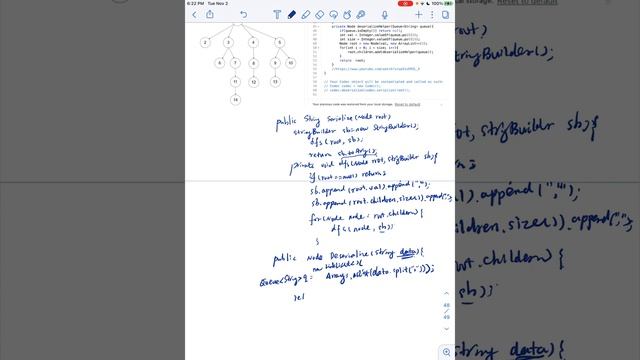 6:22 PM Tue Nov 2
100%
2 3 4 5
6 7 8 9 10
11 12 13
14
private Node deserializeHelper(Queue<String> queue){
if(queue.isEmpty()) return null;
int val = Integer.valueOf(queue.poll());
int size = Integer.valueOf(queue.poll());
Node root = new Node(val, new ArrayList<>());
for(int i = 0; i < size; i++){
root.children.add(deserializeHelper(queue));
}
return root;
}
}
// Your Codec object will be instantiated and called as such:
// Codec codec = new Codec();
// codec.deserialize(codec.serialize(root));
Your previous code was restored from your local storage. Reset to default
public String Serialize (Node root)
StringBuilder sb = new StringBuilder();
dfs (root, sb);
return sb.toString();
private void dfs(Node root, StringBuilder sb){
if (root == null) return;
sb.append(root.val).append(",");
sb.append(root.children.size()).append(",");
for(Node node : root.children) {
dfs (node, sb);
}
public Node Deserialize (String data){
new LinkedList<>(
Queue<String> q = Arrays.asList(data.split(",")));
ret
48
/
49
storage. Reset to default
root)
StringBuilder();
root, StringBuilder sb){
s;
).append(",");
children.size()).append(",");
root.children) {
sb);
String data){